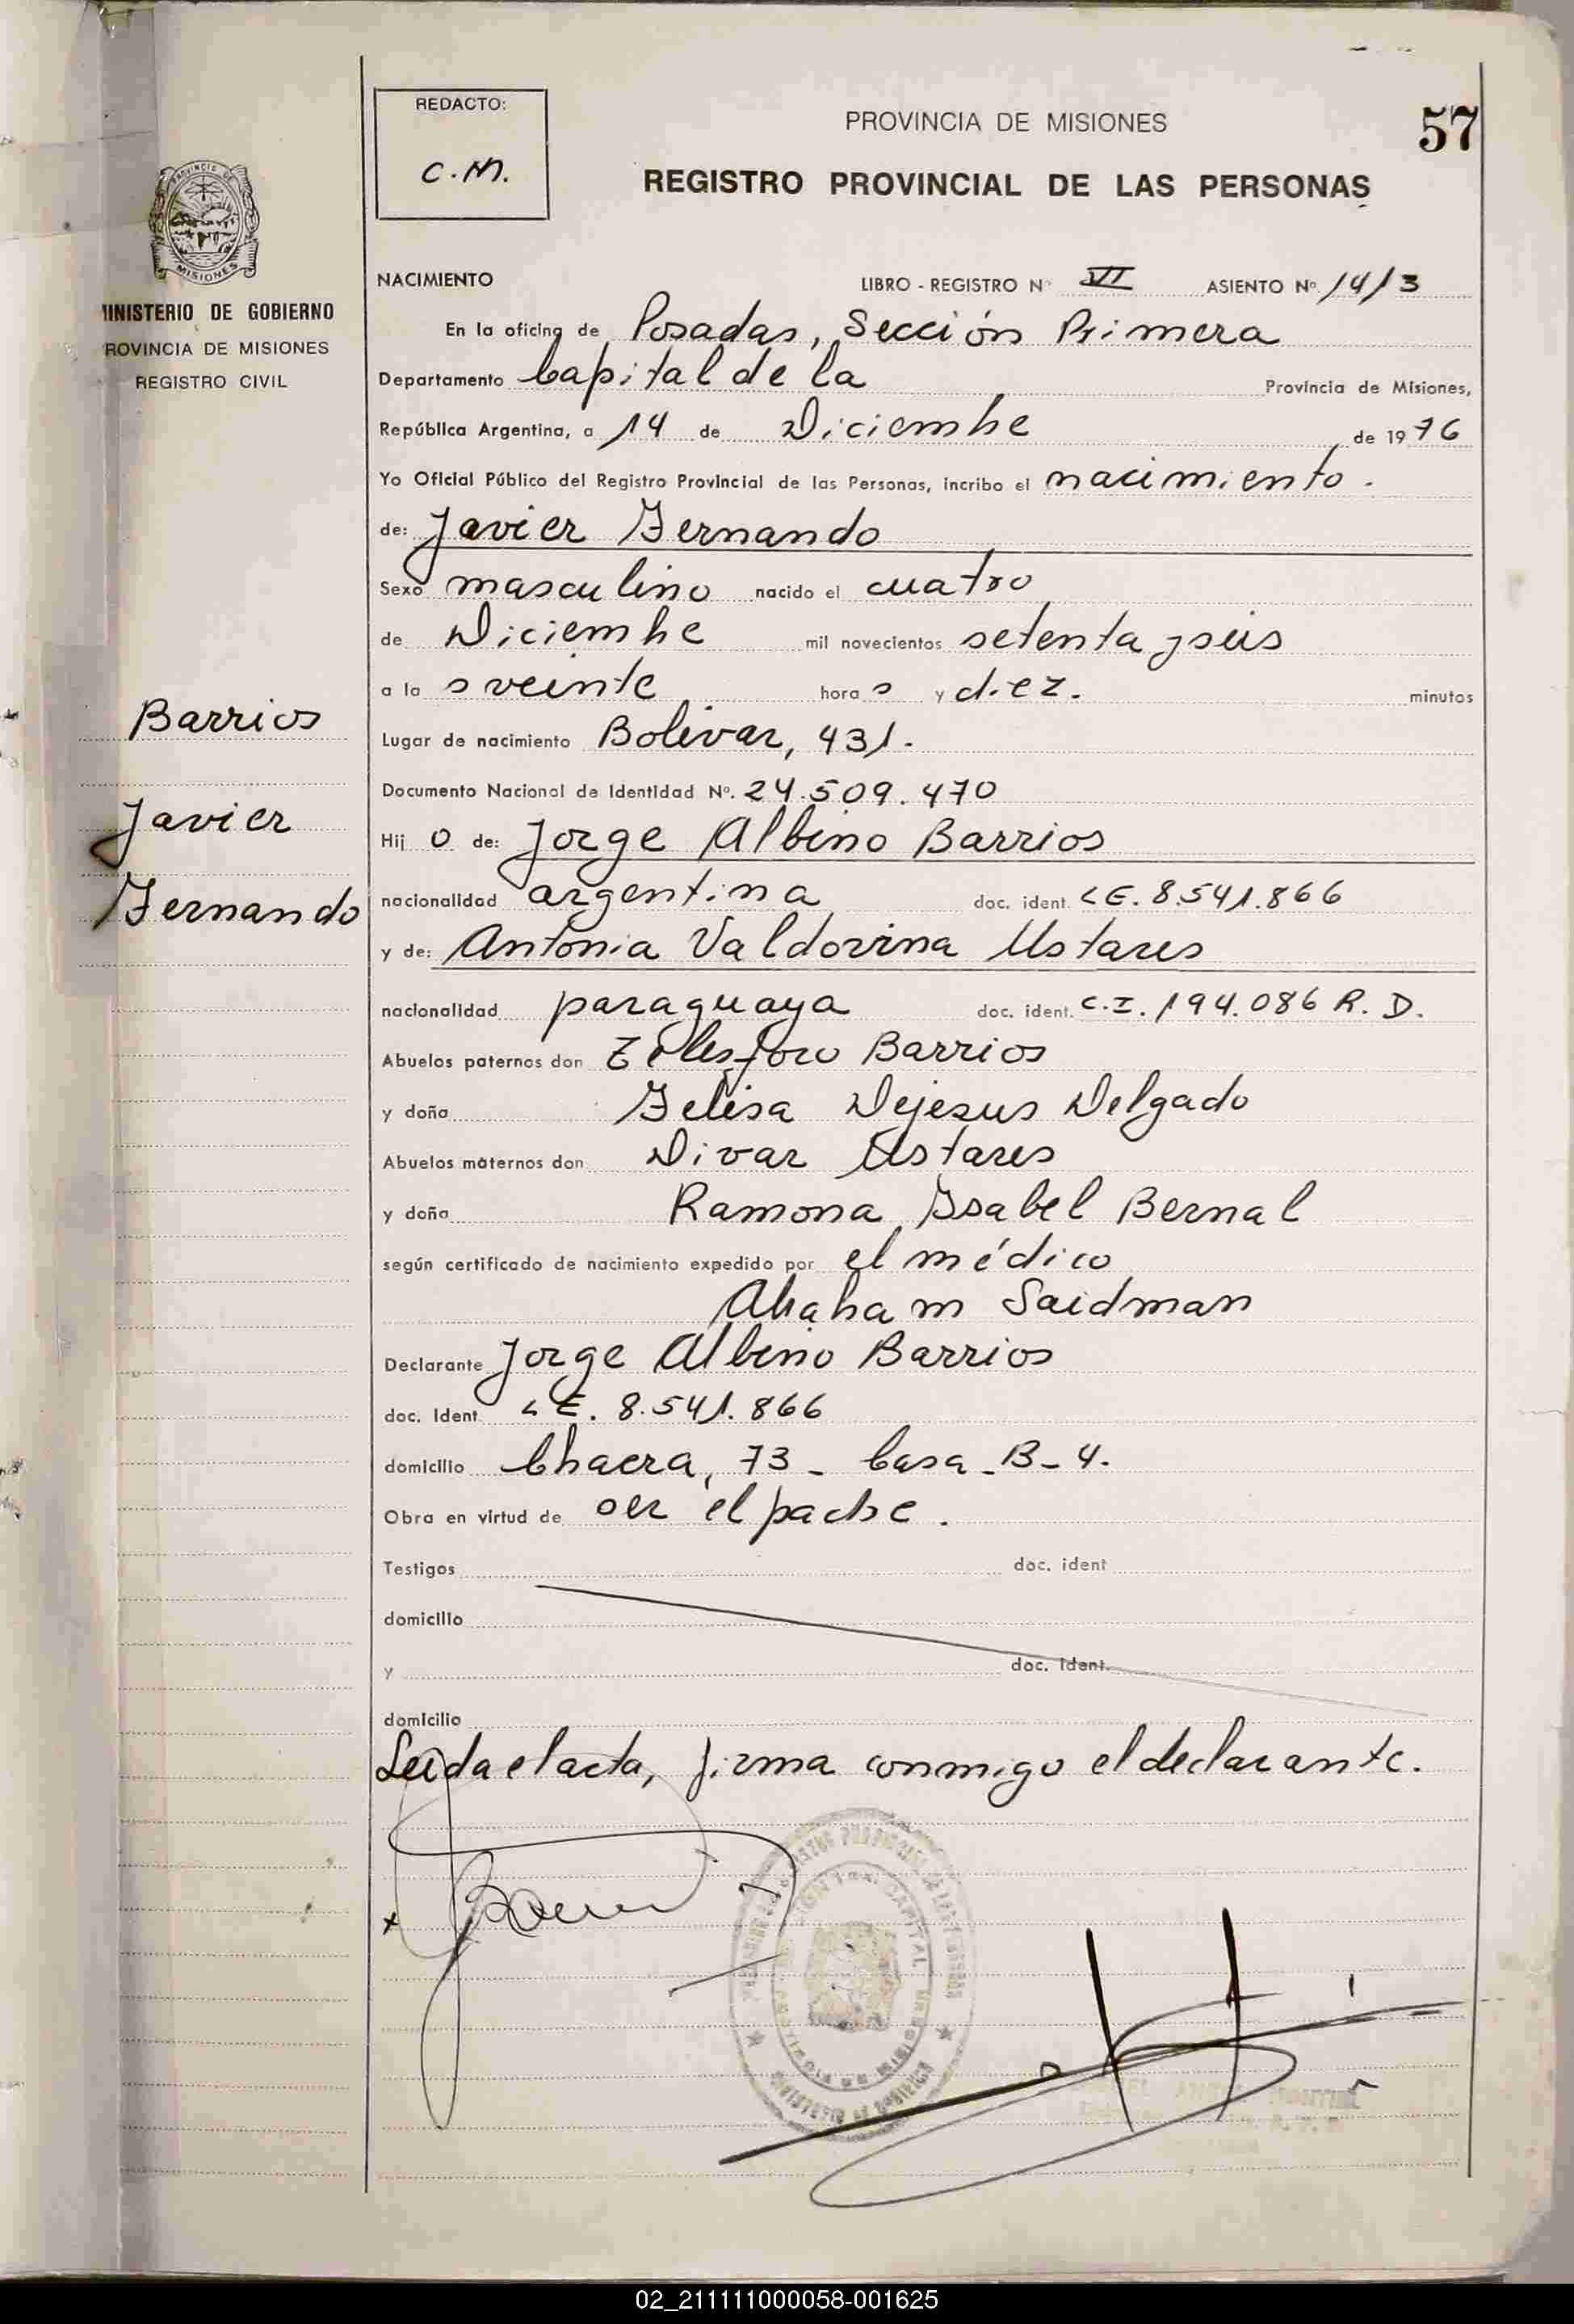 REDACTO:
C.M.
PROVINCIA DE MISIONES
57
REGISTRO PROVINCIAL DE LAS PERSONAS
PROVINCIA DE
MISIONES
MINISTERIO DE GOBIERNO
PROVINCIA DE MISIONES
REGISTRO CIVIL
NACIMIENTO LIBRO - REGISTRO Nº VI ASIENTO Nº 1413
En la oficina de Posadas, Sección Primera
Departamento Capital de la Provincia de Misiones,
República Argentina, a 14 de Diciembre de 1976
Yo Oficial Público del Registro Provincial de las Personas, incribo el nacimiento.
de: Javier Fernando
Sexo masculino nacido el cuatro
de Diciembre mil novecientos setenta y seis
a la s veinte hora s y diez. minutos
Barrios
Javier
Fernando
Lugar de nacimiento Bolivar, 431.
Documento Nacional de Identidad Nº. 24.509.470
Hij o de: Jorge Albino Barrios
nacionalidad argentina doc. ident. LE. 8.541.866
y de: Antonia Valdovina Ustares
nacionalidad paraguaya doc. ident. C.I. 194.086 R. D.
Abuelos paternos don Telesforo Barrios
y doña Felisa Dejesus Delgado
Abuelos maternos don Divar Ustares
y doña Ramona Isabel Bernal
según certificado de nacimiento expedido por el médico
Abraham Saidman
Declarante Jorge Albino Barrios
doc. Ident LE. 8.541.866
domicilio Chacra, 73 - Casa - B - 4.
Obra en virtud de ser el padre.
Testigos doc. ident
domicilio
y doc. ident.
domicilio
Leida el acta, firma conmigo el declarante.
02_211111000058-001625